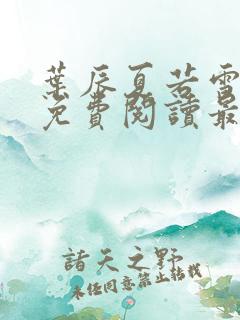 葉辰夏若雪
免費閱讀最
諸天之野
未經同意禁止轉載